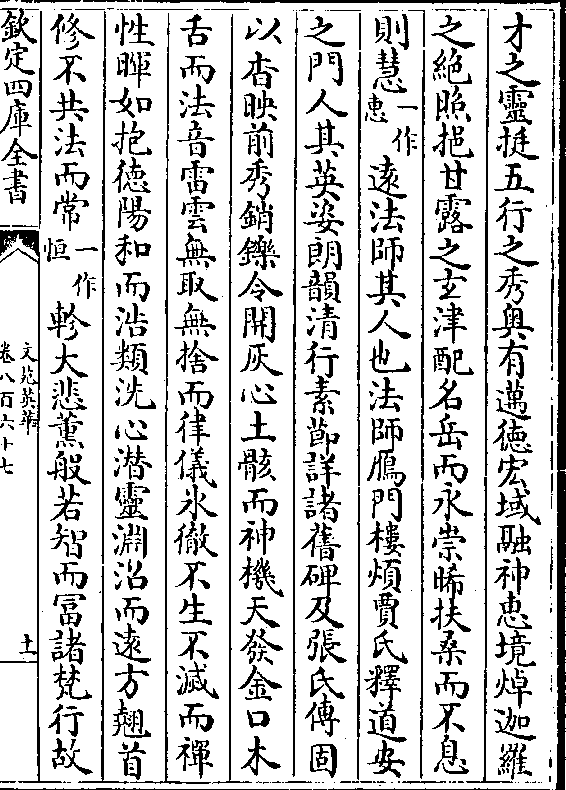 才之靈挺五行之秀輿有邁徳宏域融神惠境焯迦羅
之絶照挹甘露之玄津配名岳而永崇晞扶桑而不息
則慧一作惠逺法師其人也法師鴈門樓煩賈氏釋道安
之門人其英姿朗韻清行素節詳諸舊碑及張氏傳固
以杳映前秀銷鑠令開灰心土骸而神機天發金口木
舌而法音雷雲無取無捨而律儀氷徹不生不滅而禪
性暉如抱徳陽和而浩類洗心潛靈淵沼而逺方翹首
修不共法而常一作恒軫大悲薫般若智而冨諸梵行故
欽定四庫全書
文苑英華
卷八百六十七
十一